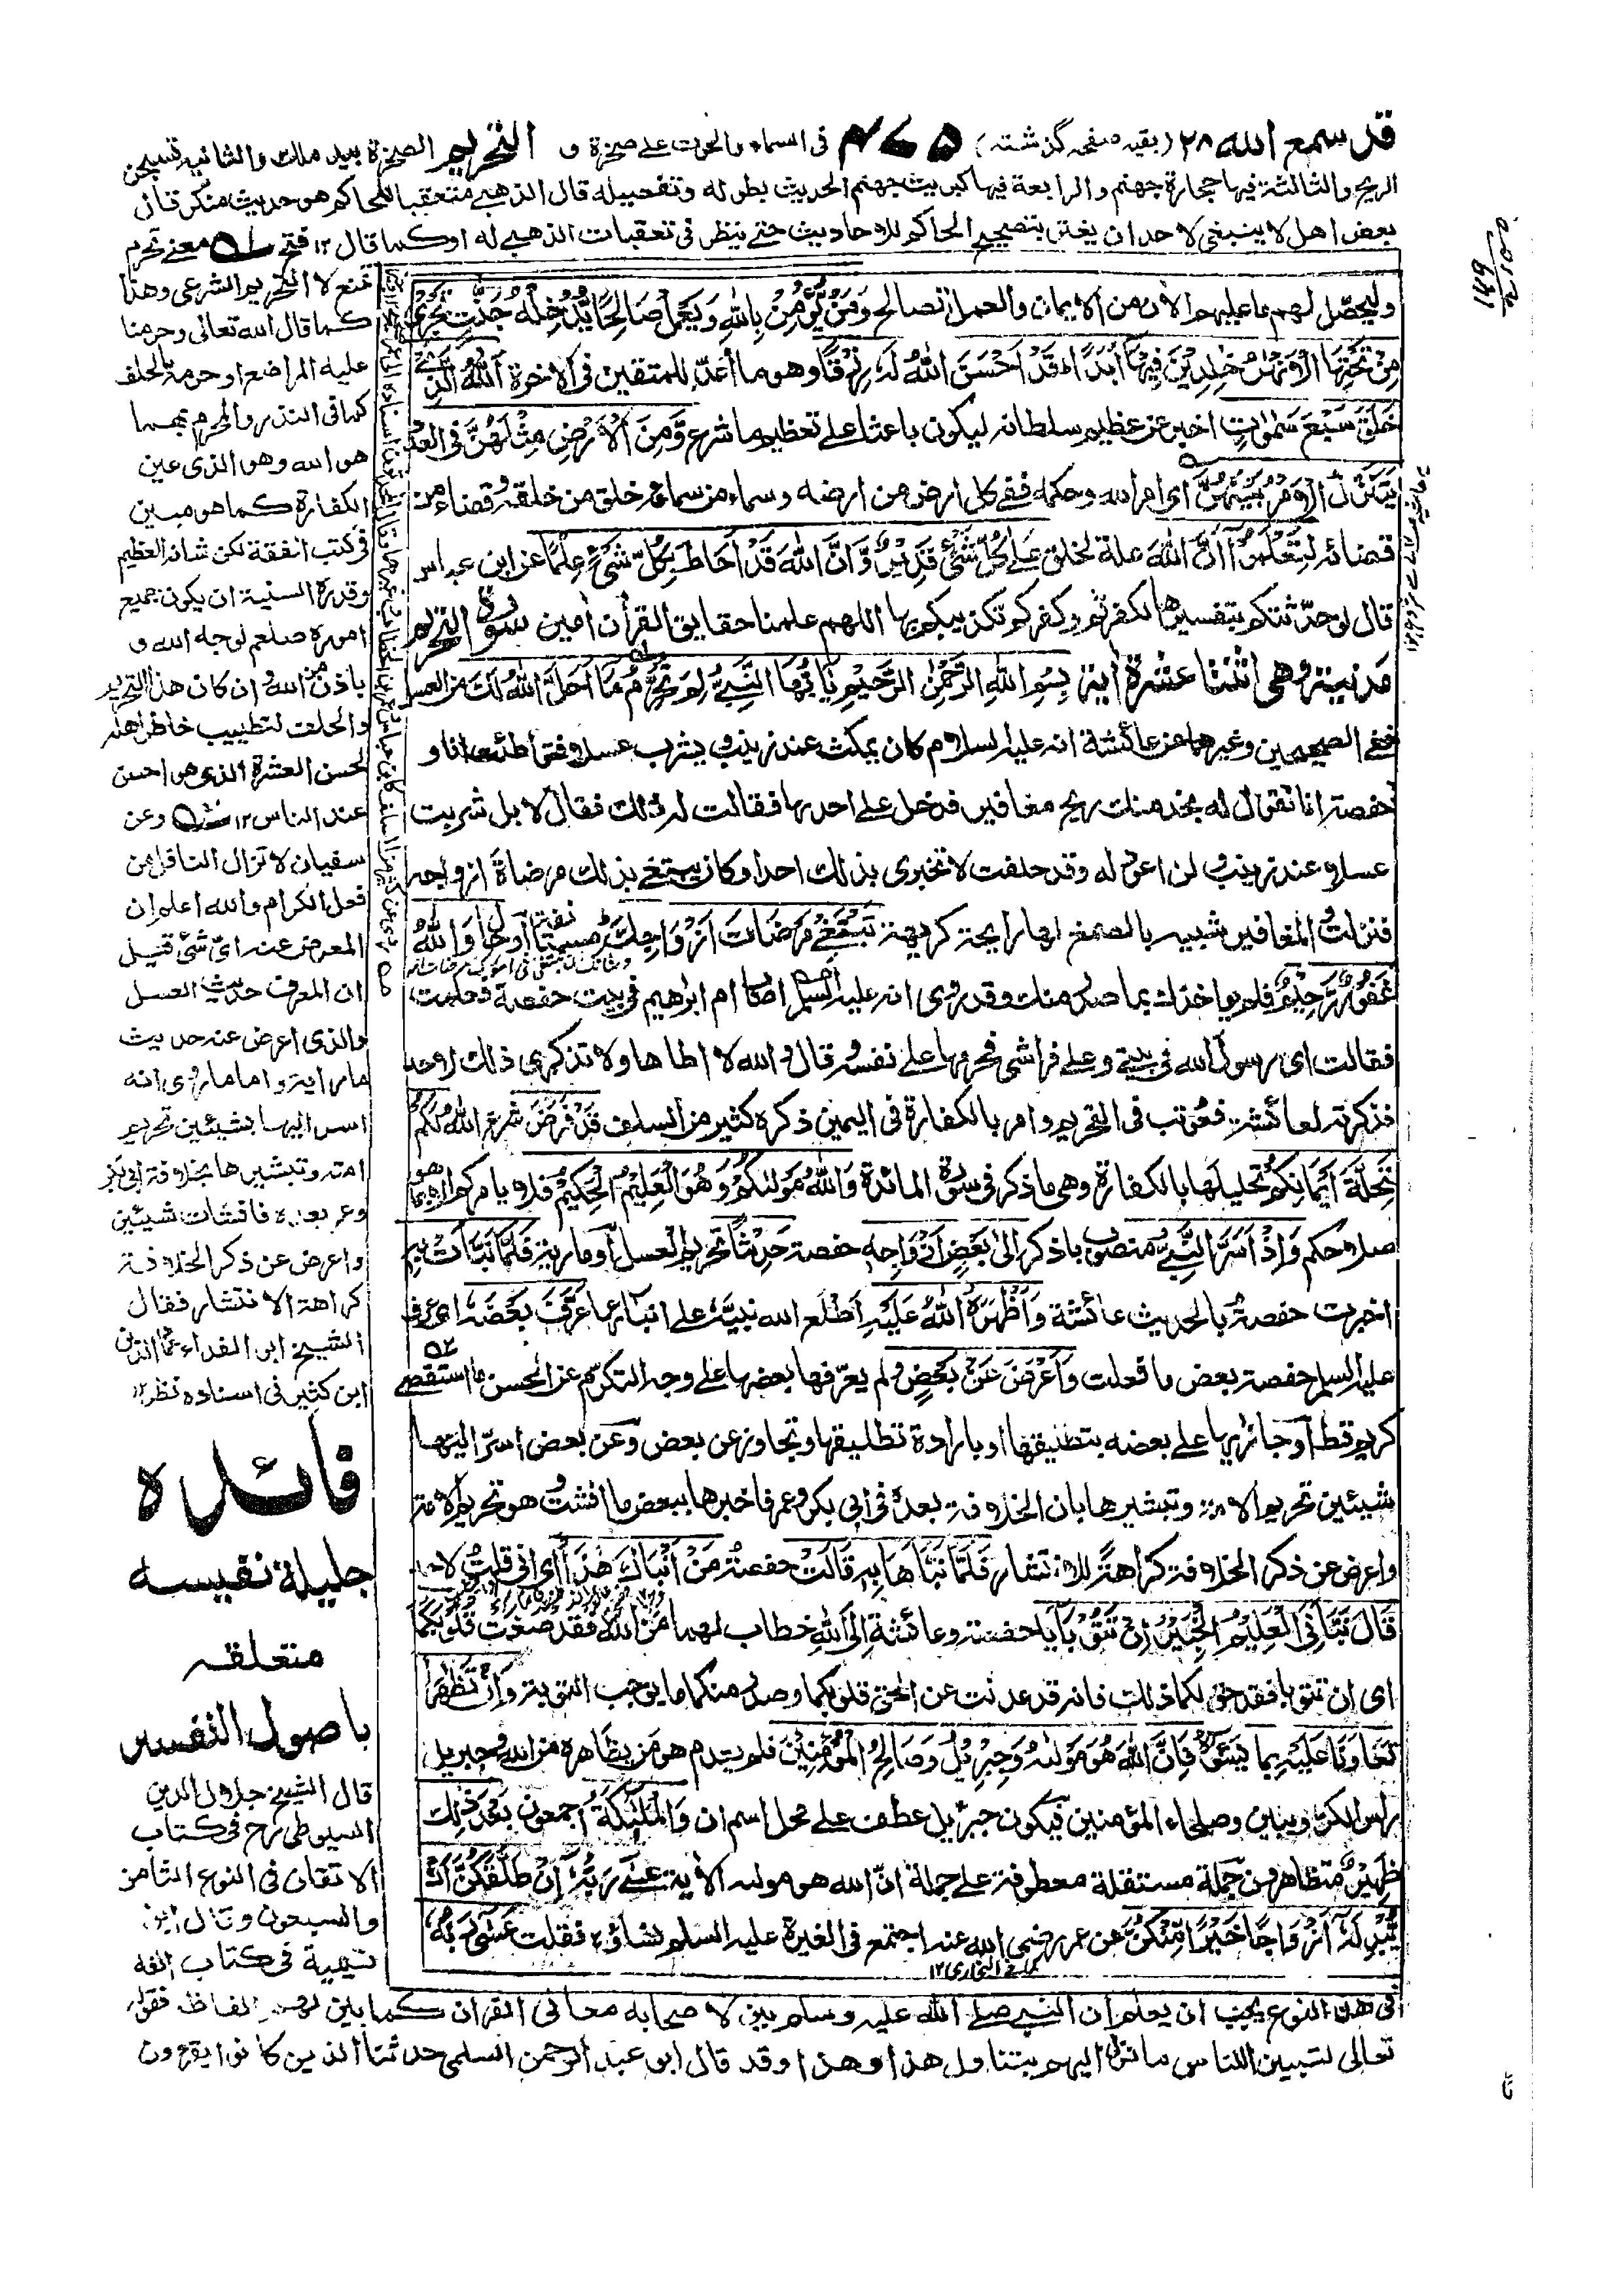 قد سمع الله ٢٨ (بقیہ صفحہ گزشتہ) ٤٧٥ فى السماء والحوت على صخرة و التحريم الصخرة بيد ملك والثانية تسجن
الريح والثالثة فيها حجارة جهنم والرابعة فيها كبريت جهنم الحديث بطوله وتفصيله قال الذهبي متعقبا للحاكم هو حديث منكر قال
بعض اهل لا ينبغى لاحد ان يغتر بتصحيح الحاكم للاحاديث حتى ينظر فى تعقبات الذهبى له او كما قال ١٢ فتح معنى تحرم
وليحصل لهم ما عليهم الآن من الايمان والعمل الصالح وَمَنْ يُّؤْمِنْ بِاللّٰهِ وَيَعْمَلْ صَالِحًا يُّدْخِلْهُ جَنّٰتٍ تَجْرِىْ
مِنْ تَحْتِهَا الْاَنْهٰرُ خٰلِدِيْنَ فِيْهَا اَبَدًا قَدْ اَحْسَنَ اللّٰهُ لَهٗ رِزْقًا وهو ما اعدّ للمتقين فى الاخرة اَللّٰهُ الَّذِىْ
خَلَقَ سَبْعَ سَمٰوٰتٍ اخبر عن عظيم سلطانه ليكون باعثا على تعظيم ما شرع وَّمِنَ الْاَرْضِ مِثْلَهُنَّ فى العدد
يَتَنَزَّلُ الْاَمْرُ بَيْنَهُنَّ اى امر الله وحكمه ففى كل ارض من ارضه وسماء من سمائه خلق من خلقه وقضاء من
قضائه لِتَعْلَمُوْٓا اَنَّ اللّٰهَ علة لخلق عَلٰى كُلِّ شَىْءٍ قَدِيْرٌ وَّاَنَّ اللّٰهَ قَدْ اَحَاطَ بِكُلِّ شَىْءٍ عِلْمًا عن ابن عباس
قال لو حدّثتكم بتفسيرها لكفرتم وكفركم تكذيبكم بها اللهم علمنا حقايق القرآن امين سورة التحريم
مدنية وهى اثنتا عشرة اية بِسْمِ اللّٰهِ الرَّحْمٰنِ الرَّحِيْمِ يٰٓاَيُّهَا النَّبِىُّ لِمَ تُحَرِّمُ مَآ اَحَلَّ اللّٰهُ لَكَ من العسل
ففى الصحيحين وغيرهما عن عائشة انه عليه السلام كان يمكث عند زينب ويشرب عسلا فتواطئت انا و
حفصة انا نقول له نجد منك ريح مغافير فدخل على احدىها فقالت له ذلك فقال لا بل شربت
عسلا عند زينب ولن اعود له وقد حلفت لا تخبرى بذلك احدا وكان يبتغى بذلك مرضاة ازواجه
فنزلت والمغافير شبيه بالصمغ لها رايحة كريهة تَبْتَغِىْ مَرْضَاتَ اَزْوَاجِكَ وَاللّٰهُ
غَفُوْرٌ رَّحِيْمٌ فلم يواخذك بما صدر منك وقد روى انه عليه السلم اصاب ام ابراهيم فى بيت حفصة فعلمت
فقالت اى رسول الله فى بيتى وعلى فراشى فحرمها على نفسه وقال والله لا اطاها ولا تذكرى ذلك لاحد
فذكرته لعائشة فعوتب فى التحريم وامر بالكفارة فى اليمين ذكره كثير من السلف قَدْ فَرَضَ شرع اللّٰهُ لَكُمْ
تَحِلَّةَ اَيْمَانِكُمْ تحليلها بالكفارة وهى ما ذكر فى سورة المائدة وَاللّٰهُ مَوْلٰىكُمْ وَهُوَ الْعَلِيْمُ الْحَكِيْمُ فلا يامركم الا بما هو
صلاحكم وَاِذْ اَسَرَّ النَّبِىُّ منصوب باذكر اِلٰى بَعْضِ اَزْوَاجِهٖ حفصة حَدِيْثًا تحريم العسل او مارية فَلَمَّا نَبَّاَتْ بِهٖ
اخبرت حفصة بالحديث عائشة وَاَظْهَرَهُ اللّٰهُ عَلَيْهِ اطلع الله نبيّه على انبائها عَرَّفَ بَعْضَهٗ اى عرف
عليه السلم حفصة بعض ما فعلت وَاَعْرَضَ عَنْۢ بَعْضٍ ولم يعرّفها بعضها على وجه التكرم عن الحسن ما استقصى
كريم قط او جازيها على بعضه بتطليقها او بارادة تطليقها وتجاوز عن بعض وعن بعض اسرّ اليها
شيئين تحريم الامة وتبشيرها بان الخلافة بعده فى ابى بكر وعمر فاخبرها ببعض ما افشت وهو تحريم الامة
واعرض عن ذكر الخلافة كراهةً للانتشار فَلَمَّا نَبَّاَهَا بِهٖ قَالَتْ حفصة مَنْ اَنْۢبَاَكَ هٰذَا اى انى قلت لاحد
قَالَ نَبَّاَنِىَ الْعَلِيْمُ الْخَبِيْرُ اِنْ تَتُوْبَآ يا حفصة وعائشة اِلَى اللّٰهِ خطاب لهما فَقَدْ صَغَتْ قُلُوْبُكُمَا
اى ان تتوبا فقد حق لكما ذلك فانه قد عدلت عن الحق قلوبكما وصدر منكما ما يوجب التوبة وَاِنْ تَظٰهَرَا
تعاونا عَلَيْهِ بما يسوءه فَاِنَّ اللّٰهَ هُوَ مَوْلٰىهُ وَجِبْرِيْلُ وَصَالِحُ الْمُؤْمِنِيْنَ فلم يعدم هو من يظاهره من الله وجبريل
راس الكروبيين وصلحاء المؤمنين فيكون جبرئيل عطف على محل اسم ان وَالْمَلٰٓئِكَةُ اجمعون بَعْدَ ذٰلِكَ
ظَهِيْرٌ متظاهرون جملة مستقلة معطوفة على جملة انّ الله هو موله الاية عَسٰى رَبُّهٗٓ اِنْ طَلَّقَكُنَّ اَنْ
يُّبْدِلَهٗٓ اَزْوَاجًا خَيْرًا مِّنْكُنَّ عن عمر رضى الله عنه اجتمع فى الغيرة عليه السلم نساؤه فقلت عَسٰى رَبُّهٗ
كما فى البخارى ١٢
تمنع لا التحريم الشرعى وهذا
كما قال الله تعالى وحرمنا
عليه المراضع او حرمة بالحلف
كما فى النذر والمحرم فيهما
هو الله وهو الذى عين
الكفارة كما هو مبين
فى كتب الفقة لكن شانه العظيم
وقدره السنية ان يكون جميع
اموره صلعم لوجه الله و
باذن من الله وان كان هذا التحريم
والحلف لتطييب خاطر اهله
لحسن العشرة الذى هو احسن
عند الناس ١٢ وعن
سفيان لا تزال التغافل من
فعل الكرام والله اعلم ان
المعرض عنه اىّ شئ قيل
ان المعرف حديث العسل
والذى اعرض عنه حديث
مارية واما ما روى انه
اسر اليها بشيئين تحريم
امته وتبشيرها بخلافة ابى بكر
وعمر بعده فافشات شيئين
واعرض عن ذكر الخلافة
كراهة الانتشار فقال
الشيخ ابو الفداء عماد الدين
ابن كثير فى اسناده نظر ١٢
فائدہ
جلیلة نفیسہ
متعلقہ
باصول التفسير
قال الشيخ جلال الدين
السيوطى رح فى كتاب
الاتقان فى النوع الثامن
والسبعون وقال ابن
تيمية فى كتاب الفه
فى هذا النوع يجب ان يعلم ان النبى صلى الله عليه وسلم بين لاصحابه معانى القران كما بين لهم الفاظه فقوله
تعالى لتبين للناس ما نزل اليهم يتناول هذا وهذا وقد قال ابو عبد الرحمن السلمى حدثنا الذين كانوا يقرءون